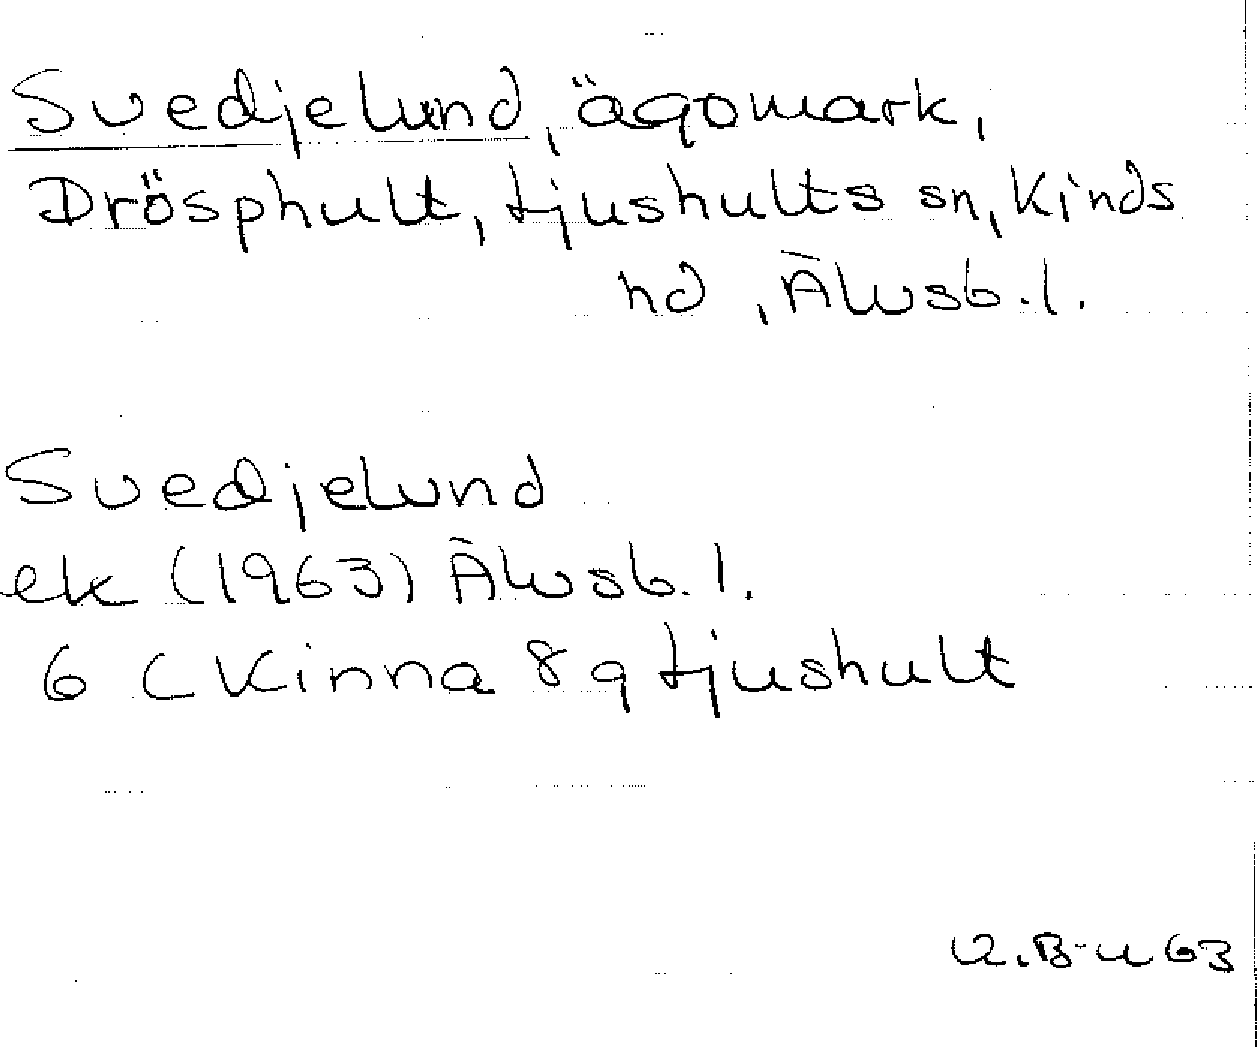 Svedjelund, ägomark,
Drösphult, Ljushults sn, Kinds
hd, Älvsb. l.
Svedjelund
ek (1963) Älvsb. l.
6 C Kinna 8 q Ljushult
63